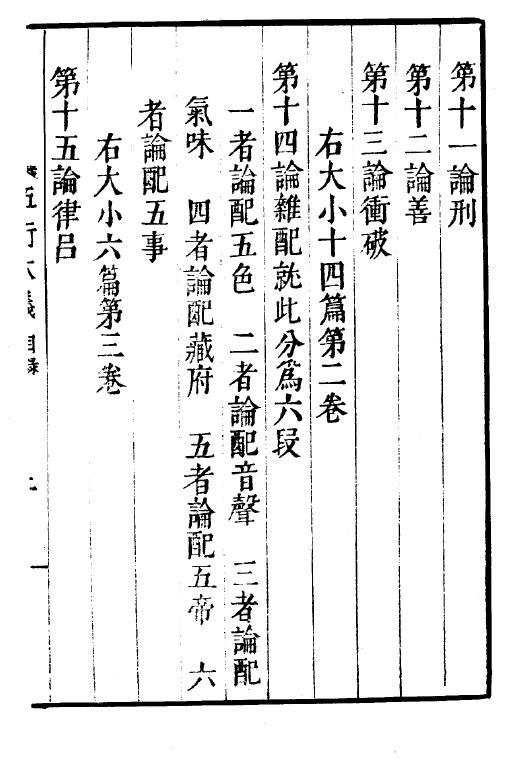 第十一論刑
第十二論善
第十三論衝破
右大小十四篇第二卷
第十四論雜配就此分爲六段
一者論配五色 二者論配音聲 三者論配
氣味 四者論配藏府 五者論配五帝 六
者論配五事
右大小六篇第三卷
第十五論律呂
五行大義目錄